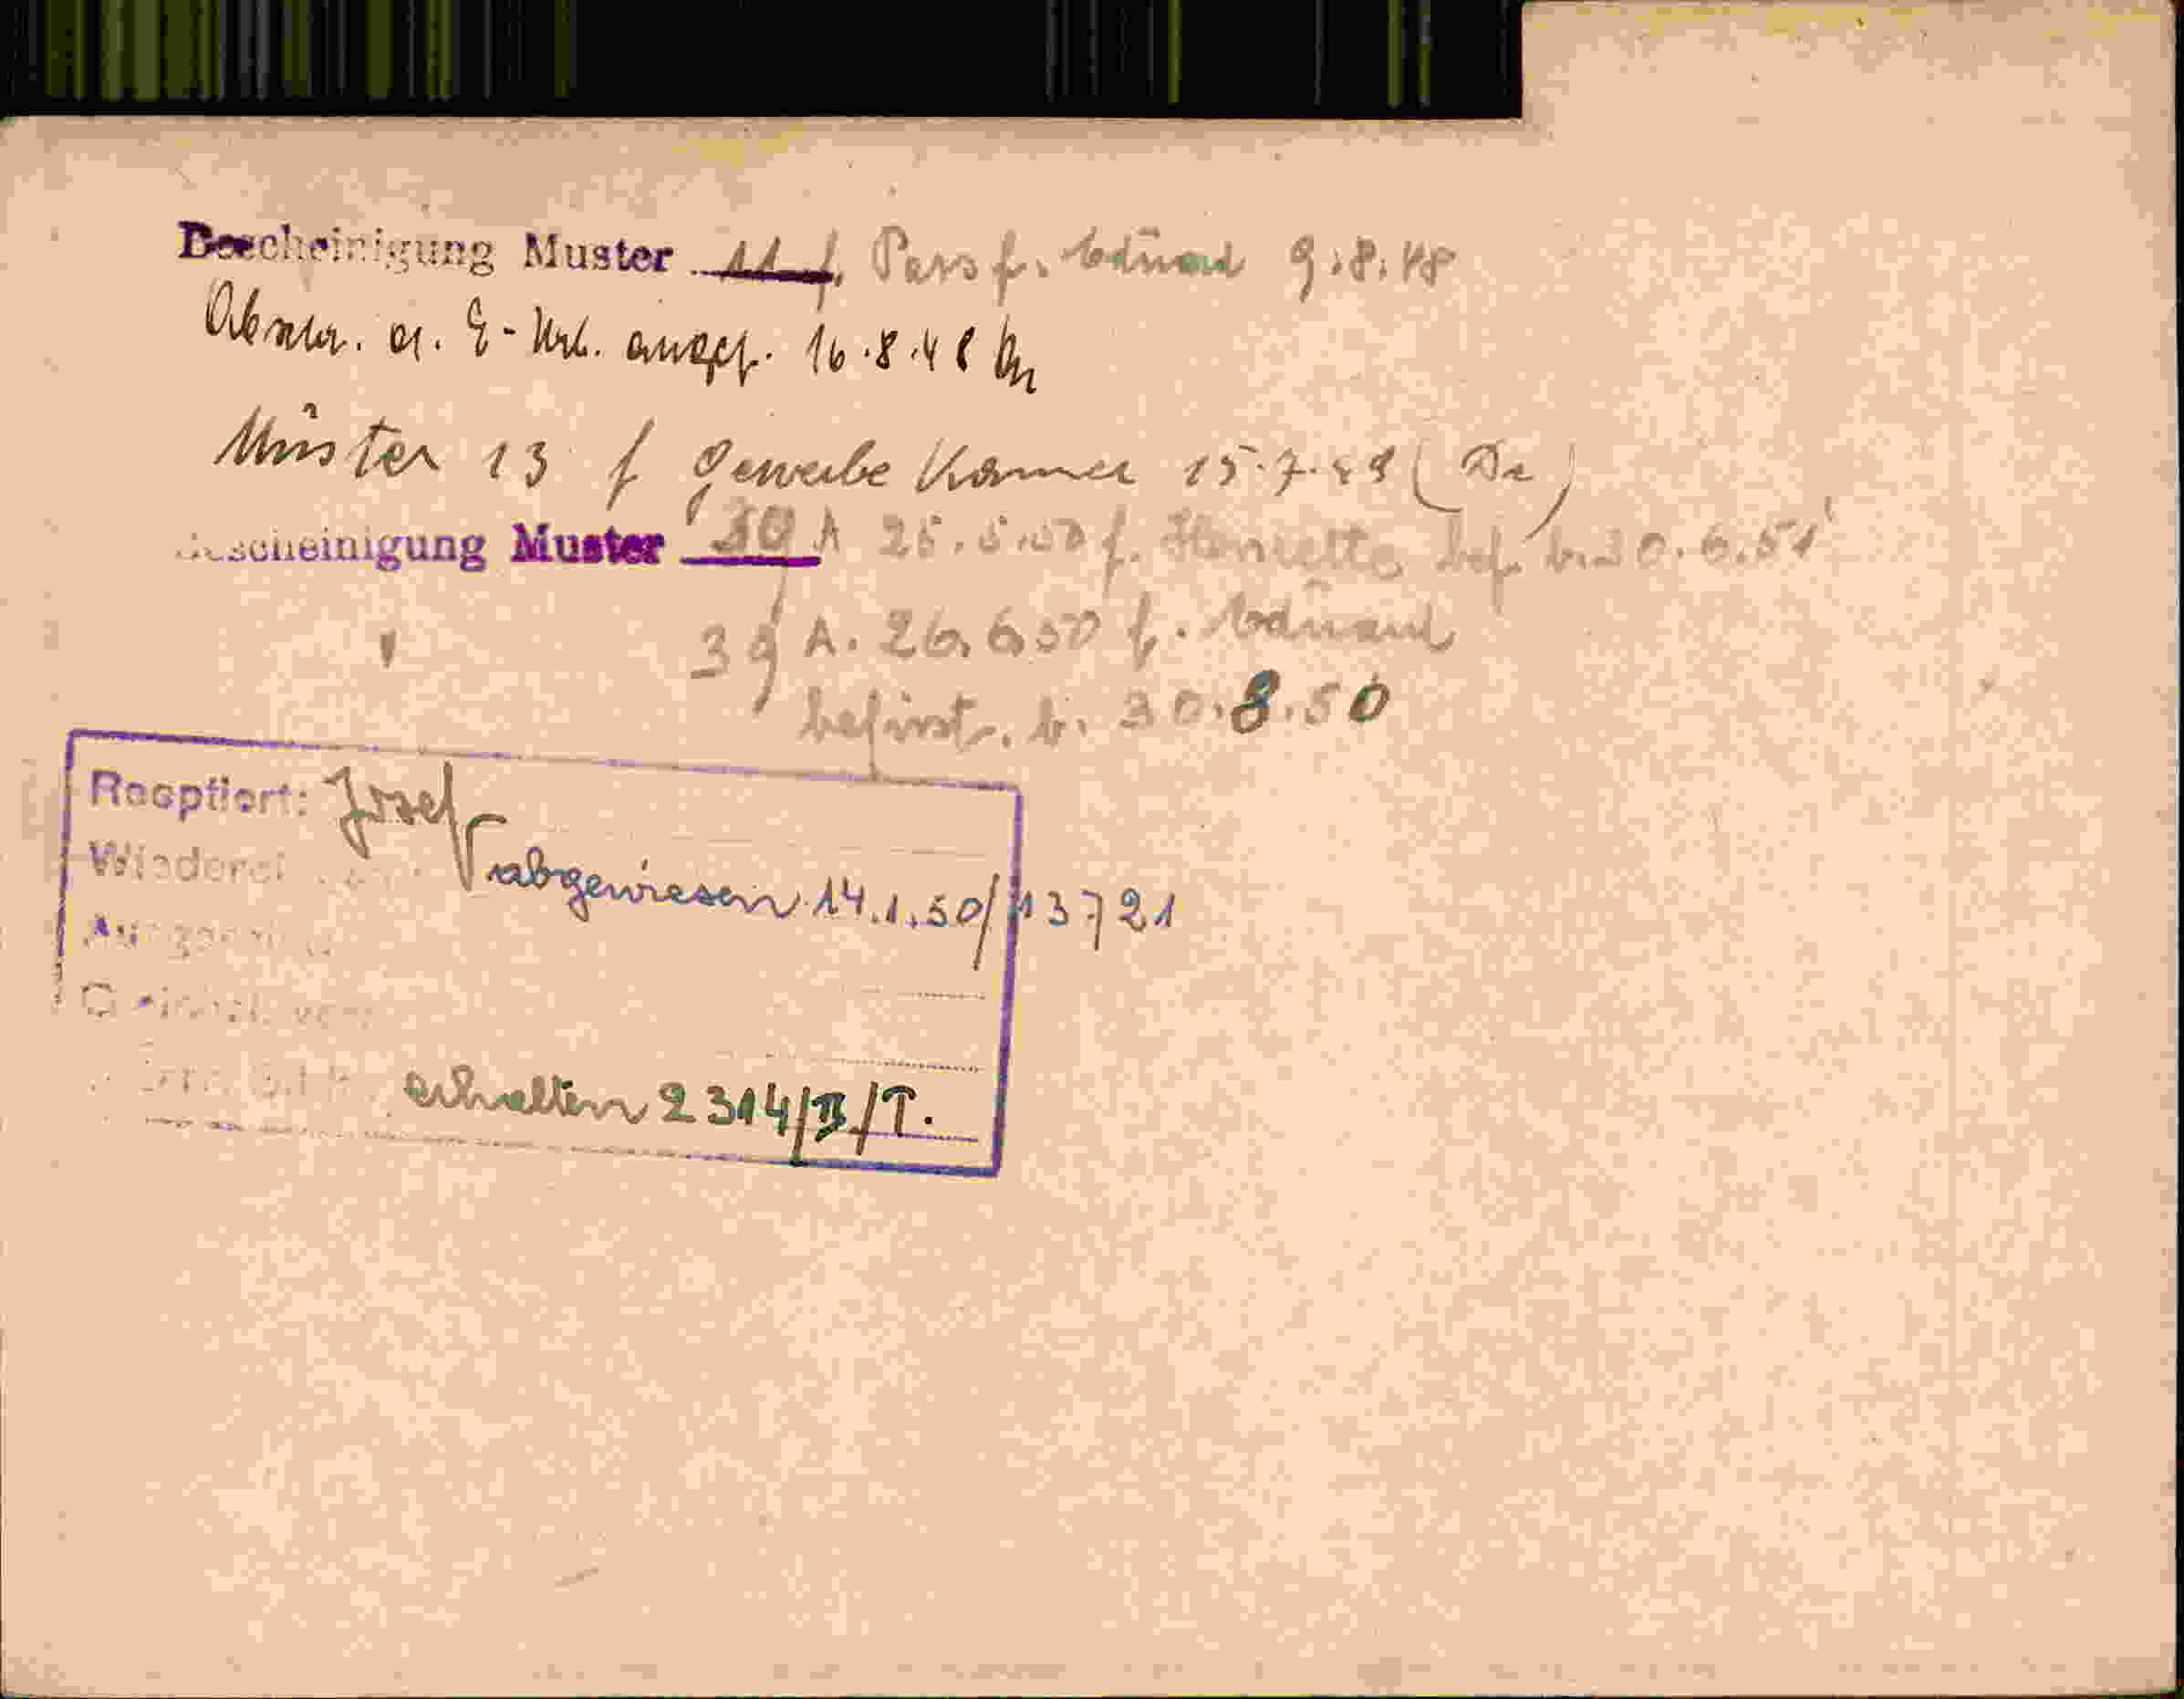 Bescheinigung Muster 11 f. Pass f. Eduard 9.8.48
Abschr. a. E-Urk. ausgef. 16.8.48
Muster 13 f Gewerbe Kammer 15.7.49 (Dr)
Bescheinigung Muster 39 A 25.5.50 f. Henriette bef. b. 30.6.51
" 39 A. 26.6.50 f. Eduard
befrist. b. 30.8.50
Reoptiert: Josef
Wiederei
abgewiesen 14.1.50/13721
erhalten 2314/II/T.